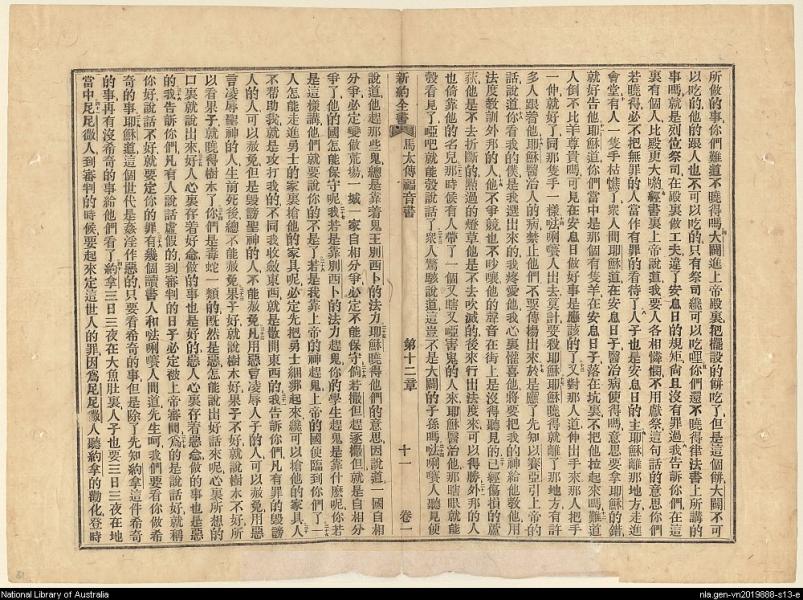 所做的事你們難道不曉得嗎大闢進上帝殿裏把擺設的餅吃了但是這個餅大闢不可
以吃的他的跟人也不可以吃的只有祭司纔可以吃哩你們還不曉得律法書上所講的
事嗎就是列位祭司在殿裏做工夫違了安息日的規矩尙且沒有罪過我告訴你們在這
裏有個人比殿更大喲經書裏上帝說道我要人各相憐憫不用獻祭這句話的意思你們
若曉得必不把無罪的人當作有罪的看待了人子也是安息日的主耶穌離那地方走進
會堂有人一隻手枯憔了衆人問耶穌道在安息日子醫治病使得嗎意思要拿耶穌的錯
就好告他耶穌道你們當中是那個有隻羊在安息日子落在坑裏不把他拉起來嗎難道
人倒不比羊尊貴嗎可見在安息日做好事是應該的了又對那人道伸出手來那人把手
一伸就好了同那隻手一樣㕵唎嚽人出去莫計要殺耶穌耶穌曉得就離了那地方有許
多人跟着他耶穌醫治人的病禁止他們不要傳揚出來於是應了先知以賽亞引上帝的
話說道你看我的僕是我選出來的我疼愛他我心裏懽喜他將要把我的神給他敎他用
法度敎訓外邦的人他不爭競也不吵嚷他的聲音在街上是沒得聽見的已經傷損的蘆
荻他是不去折斷的點過的燈草他是不去吹滅的後來行出法度來可以得勝外邦的人
也倚靠他的名兒那時候有人帶了一個又瞎又啞害鬼的人來耶穌醫治他那瞎眼就能
彀看見了啞吧就能彀說話了衆人驚駭說道這豈不是大闢的子孫嗎㕵唎嚽人聽見便
新約全書 馬太傳福音書 第十二章 十一 卷一
說道他趕那些鬼總是靠着鬼王別西卜的法力耶穌曉得他們的意思因說道一國自相
分爭必定變做荒場一城一家自相分爭必定不能保守倘若撒但趕逐撒但就是自相分
爭了他的國怎能保守呢我若是靠別西卜的法力趕鬼你的學生趕鬼是靠什麽呢你若
是這樣講他們就要說你的不是了若是我靠上帝的神趕鬼上帝的國便臨到你們了一
人怎能走進勇士的家裏搶他的家具呢必定先把勇士綑綁起來纔可以搶他的家具人
不帮助我就是攻打我的不同我收斂東西就是散開東西的我告訴你們凡有罪的毀謗
人的人可以赦免但是毀謗聖神的人不能赦免凡用惡言凌辱人子的人可以赦免用惡
言凌辱聖神的人生前死後總不能赦免果子好就說樹木好果子不好就說樹木不好所
以看果子就曉得樹木了你們是毒蛇一類的旣然是惡怎能說出好話來呢心裏所想的
口裏就說出來好人心裏存着好念做的事也是好的惡人心裏存着惡念做的事也是惡
的我告訴你們凡有人說話虛假的到審判的日子必定被上帝審問爲的是說話好就稱
你好說話不好就要定你的罪有幾個讀書人和㕵唎嚽人問道先生呵我們要看你做希
奇的事耶穌道這個世代是姦淫作惡的只要看希奇的事但是除了先知約拿這件希奇
的事再有沒希奇的事給他們看了約拿三日三夜在大魚肚裏人子也要三日三夜在地
當中尼尼微人到審判的時候要起來定這世人的罪因爲尼尼微人聽約拿的勸化登時
National Library of Australia
nla.gen-vn2019888-s13-e